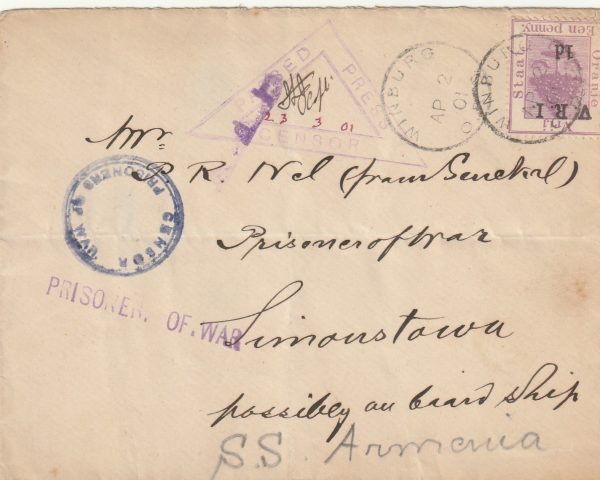 PASSED PRESS CENSOR
23 3 01
WINBURG
AP 2
01
WINBURG
Oranje
Staat
Een penny.
V.R.I.
1d
Mr.
P. R. Nel (from Senekal)
Prisoner of War
CENSOR
PRISONERS OF WAR
PRISONER. OF. WAR
Simonstown
possibly on board ship
S.S. Armenia